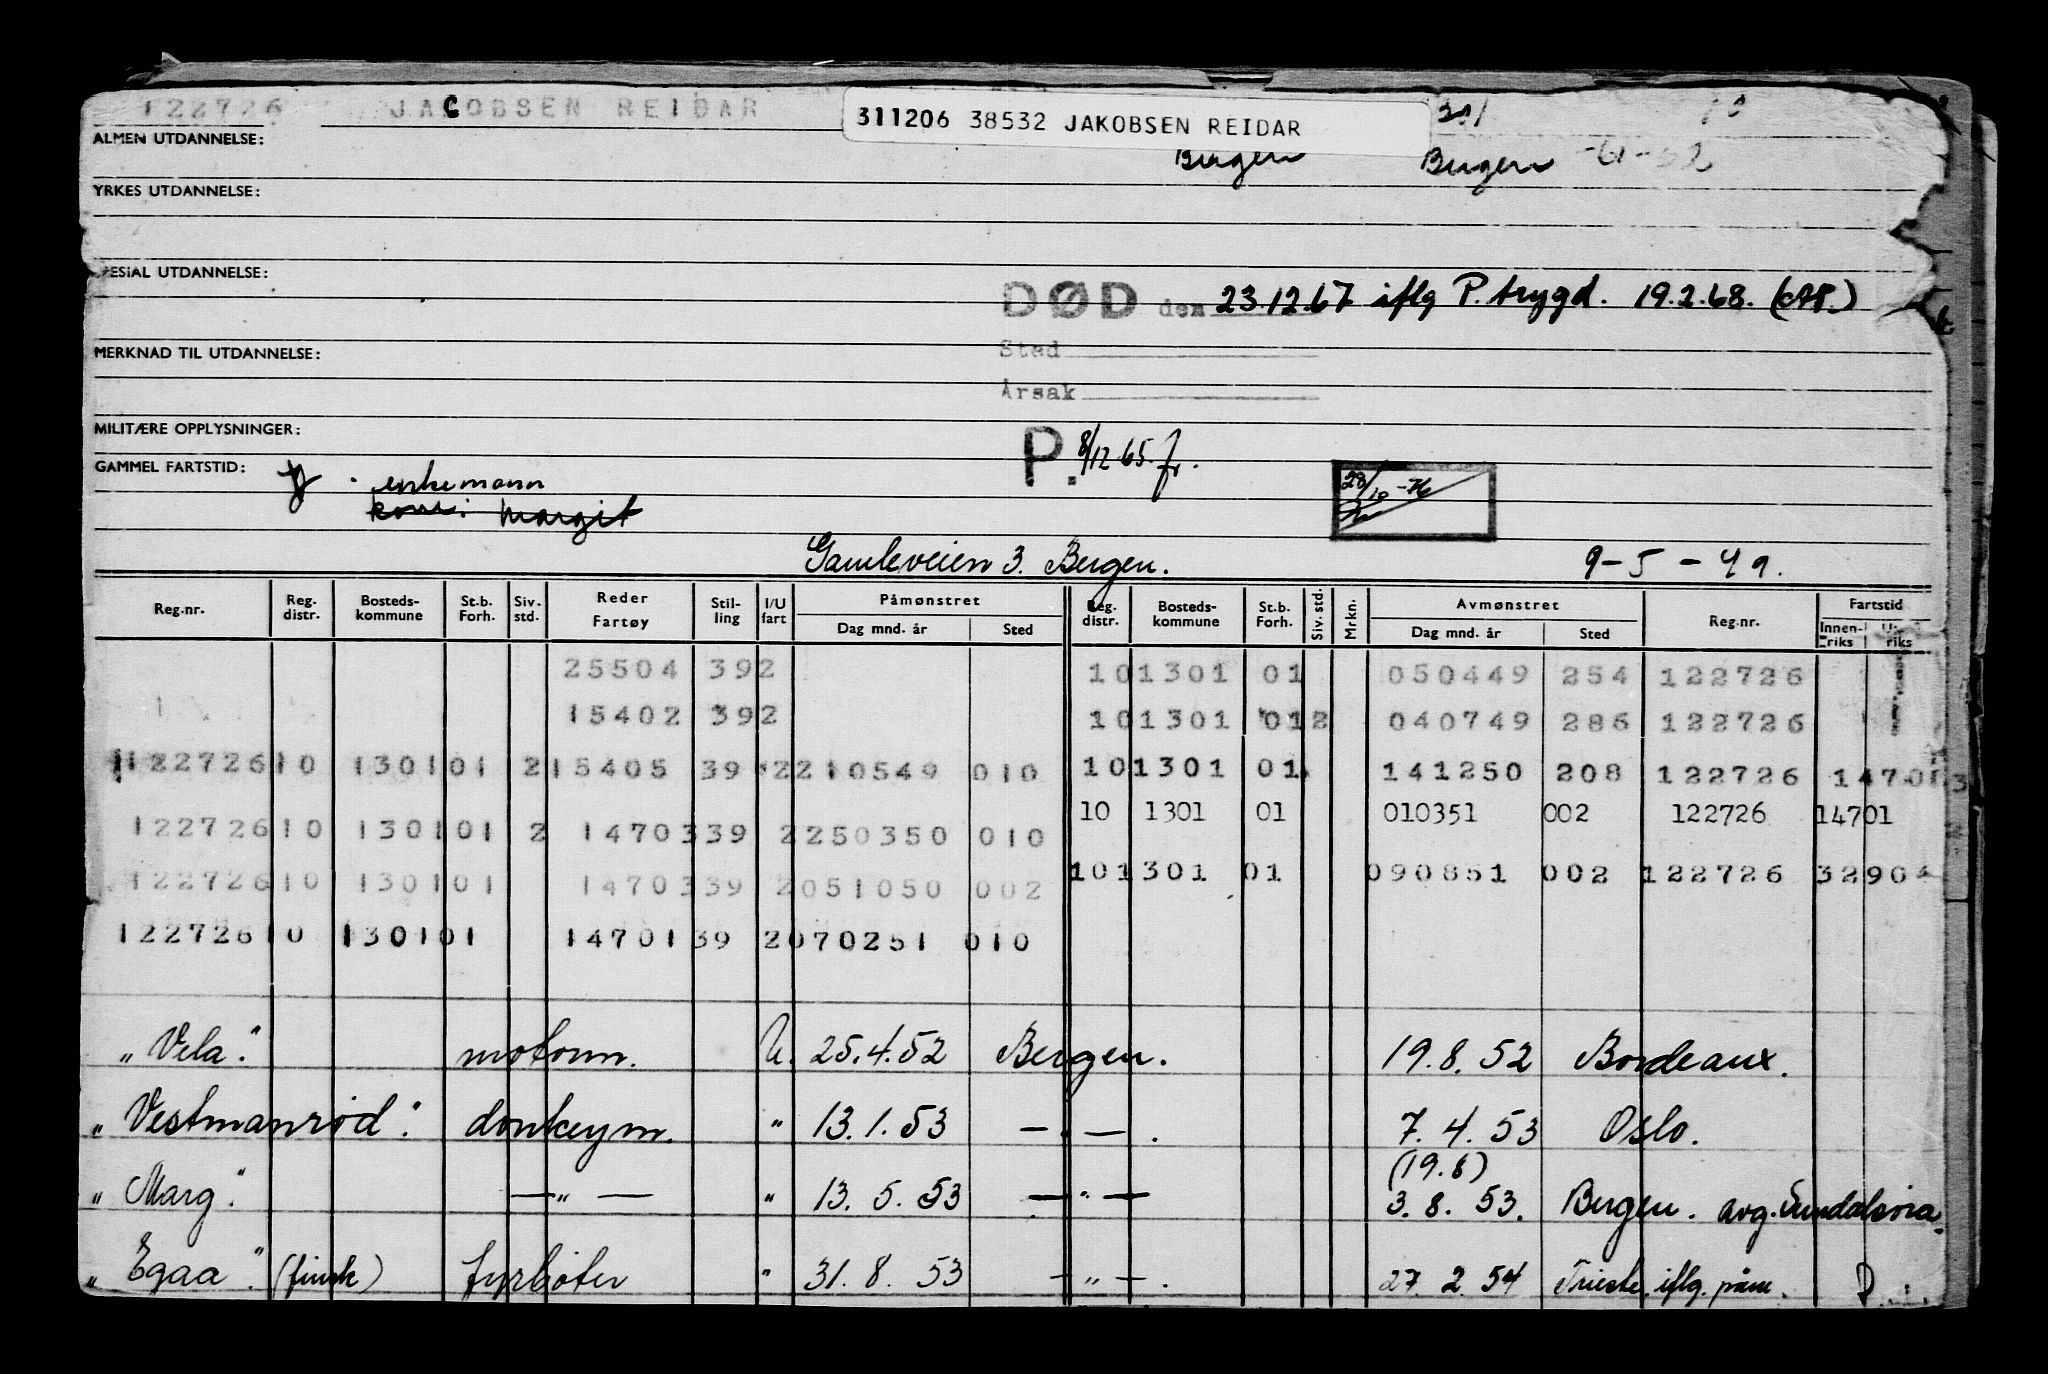 122726 JACOBSEN REIDAR
311206 38532 JAKOBSEN REIDAR
ALMEN UTDANNELSE:
Bergen Bergen
YRKES UTDANNELSE:
ESIAL UTDANNELSE:
DØD den 23.12.67 iflg P. trygd. 19.2.68.
MERKNAD TIL UTDANNELSE:
Sted
Årsak
MILITÆRE OPPLYSNINGER:
P. 8/12 65. fr.
GAMMEL FARTSTID:
enkemann
kone: Margit
28/10
Gamleveien 3. Bergen. 9-5-49.
Reg.nr. Reg. distr. Bosteds-kommune St.b. Forh. Siv. std. Reder Fartøy Stil-ling I/U fart Påmønstret Dag mnd. år Sted Reg. distr. Bosteds-kommune St.b. Forh. Siv. std. Mrkn. Avmønstret Dag mnd. år Sted Reg.nr. Fartstid Innen-riks riks
25504 392 101301 01 050449 254 122726
15402 392 101301 012 040749 286 122726
122726 10 130101 2 15405 39 2 210549 010 101301 01 141250 208 122726
10 1301 01 010351 002 122726 14701
122726 10 130101 2 14703 39 2 250350 010
101301 01 090851 002 122726
122726 10 130101 14703 39 2 051050 002
122726 10 130101 14701 39 2 070251 010
„Vela". motorm. U. 25.4.52 Bergen. 19.8.52 Bordeaux.
„Vestmanrød". donkeym. " 13.1.53 — . — . 7.4.53 Oslo.
„Marg". —„— " 13.5.53 —"— (19.6) 3.8.53. Bergen. avg. Sundalsøra.
„Egaa". (finsk) fyrbøter " 31.8.53 —„—. 27.2.54 Trieste. iflg. påm.